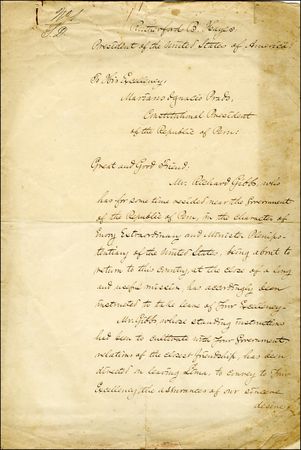 No 1
Rutherford B. Hayes
President of the United States of America
To His Excellency,
Mariano Ignacio Prado,
Constitutional President
of the Republic of Peru.
Great and Good Friend:
Mr. Richard Gibbs, who
has for some time resided near the Government
of the Republic of Peru, in the character of
Envoy Extraordinary and Minister Plenipo-
tentiary of the United States, being about to
return to this Country, at the close of a long
and useful mission has accordingly been
instructed to take leave of Your Excellency.
Mr. Gibbs whose standing instructions
had been to cultivate with Your Government
relations of the closest friendship, has been
directed on leaving Lima, to convey to Your
Excellency, the assurances of our sincere
desire